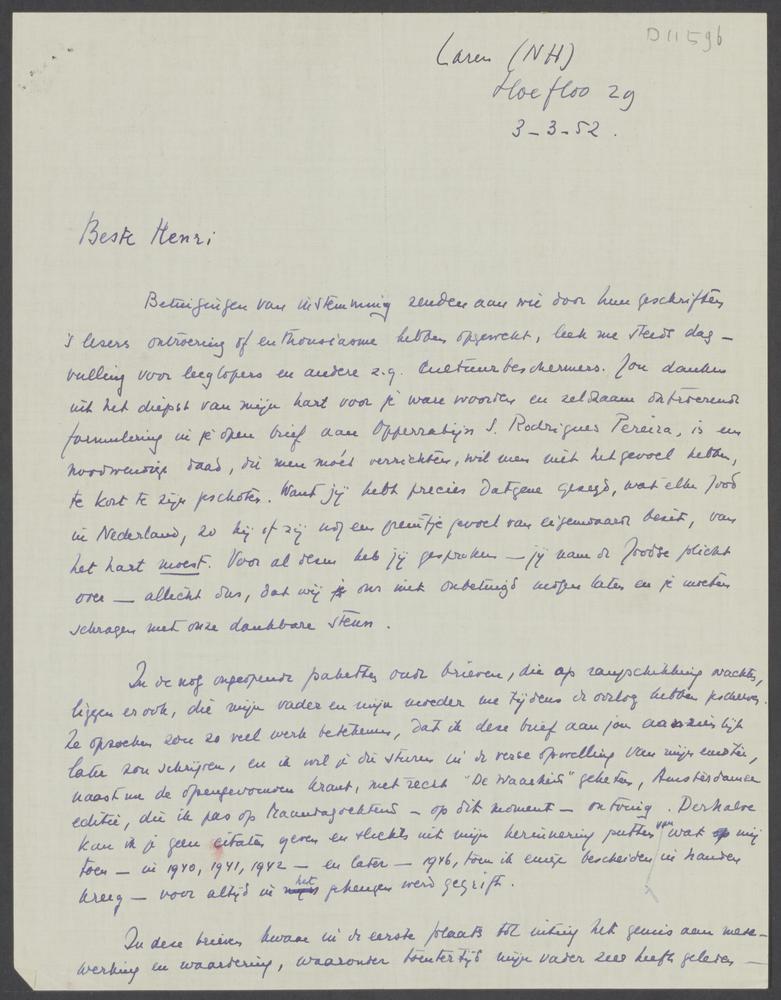 D 11596
Laren (NH)
Hoefloo 29
3-3-52.
Beste Henri
Betuigingen van instemming zenden aan wie door hun geschriften
's lezers ontroering of enthousiasme hebben opgewekt, leek me steeds dag-
vulling voor leeglopers en andere z.g. Cultuurbeschermers. Jou danken
uit het diepst van mijn hart voor je ware woorden en zeldzaam ontroerende
formulering in je open brief aan Opperrabijn S. Rodrigues Pereira, is een
noodwendige daad, die men móet verrichten, wil men niet het gevoel hebben,
te kort te zijn geschoten. Want jij hebt precies datgene gezegd, wat elke Jood
in Nederland, zo hij of zij nog een greintje gevoel van eigenwaarde bezit, van
het hart moest. Voor al dezen heb jij gesproken — jij nam de Joodse plicht
over — allicht dus, dat wij ons niet onbetuigd mogen laten en je moeten
schragen met onze dankbare steun.
In de nog ongeopende pakketten oude brieven, die op rangschikking wachten,
liggen er ook, die mijn vader en mijn moeder me tijdens de oorlog hebben geschreven.
Ze opzoeken zou zo veel werk betekenen, dat ik deze brief aan jou aanzienlijk
later zou schrijven, en ik wil je die sturen in de verse opwelling van mijn emotie,
naast me de opengevouwen krant, met recht "De Waarheid" geheten, Amsterdamse
editie, die ik pas op Maandagochtend - op dit moment - ontving. Derhalve
kan ik je geen citaten geven en slechts uit mijn herinnering putten van wat mij
toen — in 1940, 1941, 1942 — en later — 1946, toen ik enige bescheiden in handen
kreeg — voor altijd in het geheugen werd gegrift.
In deze brieven kwam in de eerste plaats tot uiting het gemis aan mede-
werking en waardering, waaronder toentertijd mijn vader zeer heeft geleden —